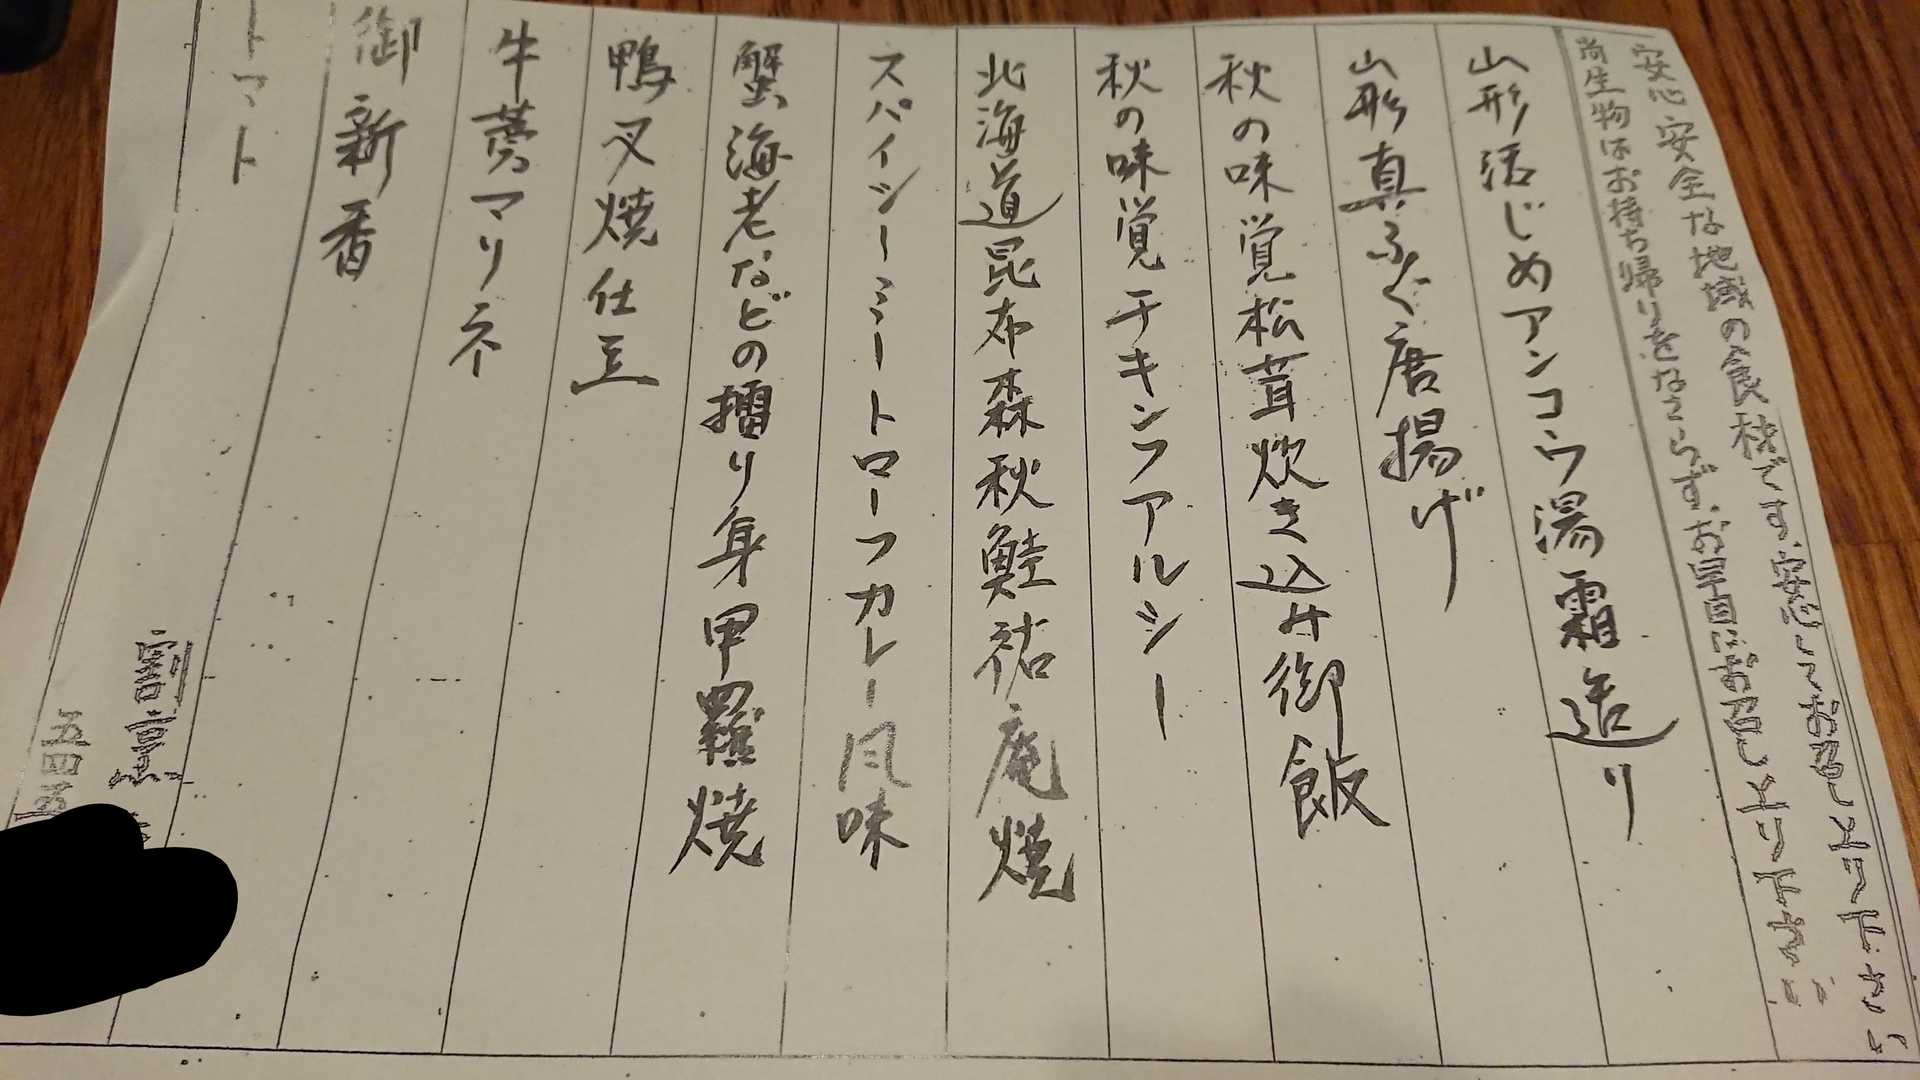 安心安全な地域の食材です、安心してお召し上り下さい
尚生物はお持ち帰りをなさらず、お早目にお召し上り下さい
山形活じめアンコウ湯霜造り
山形真ふぐ唐揚げ
秋の味覚松茸炊き込み御飯
秋の味覚チキンファルシー
北海道昆布森秋鮭祐庵焼
スパイシーミートローフカレー風味
蟹海老などの擂り身甲羅焼
鴨叉焼仕立
牛蒡マリネ
御新香
トマト
五四